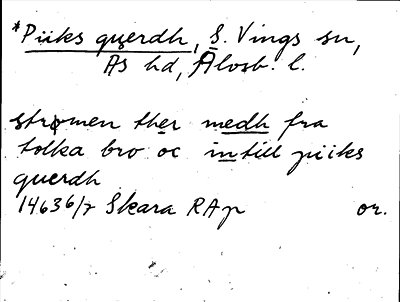 *Piiks querdh, S. Vings sn,
Ås hd, Älvsb. l.
strømen ther medh fra
tolka bro oc intill piiks
querdh
1463 6/7 Skara RAp or.